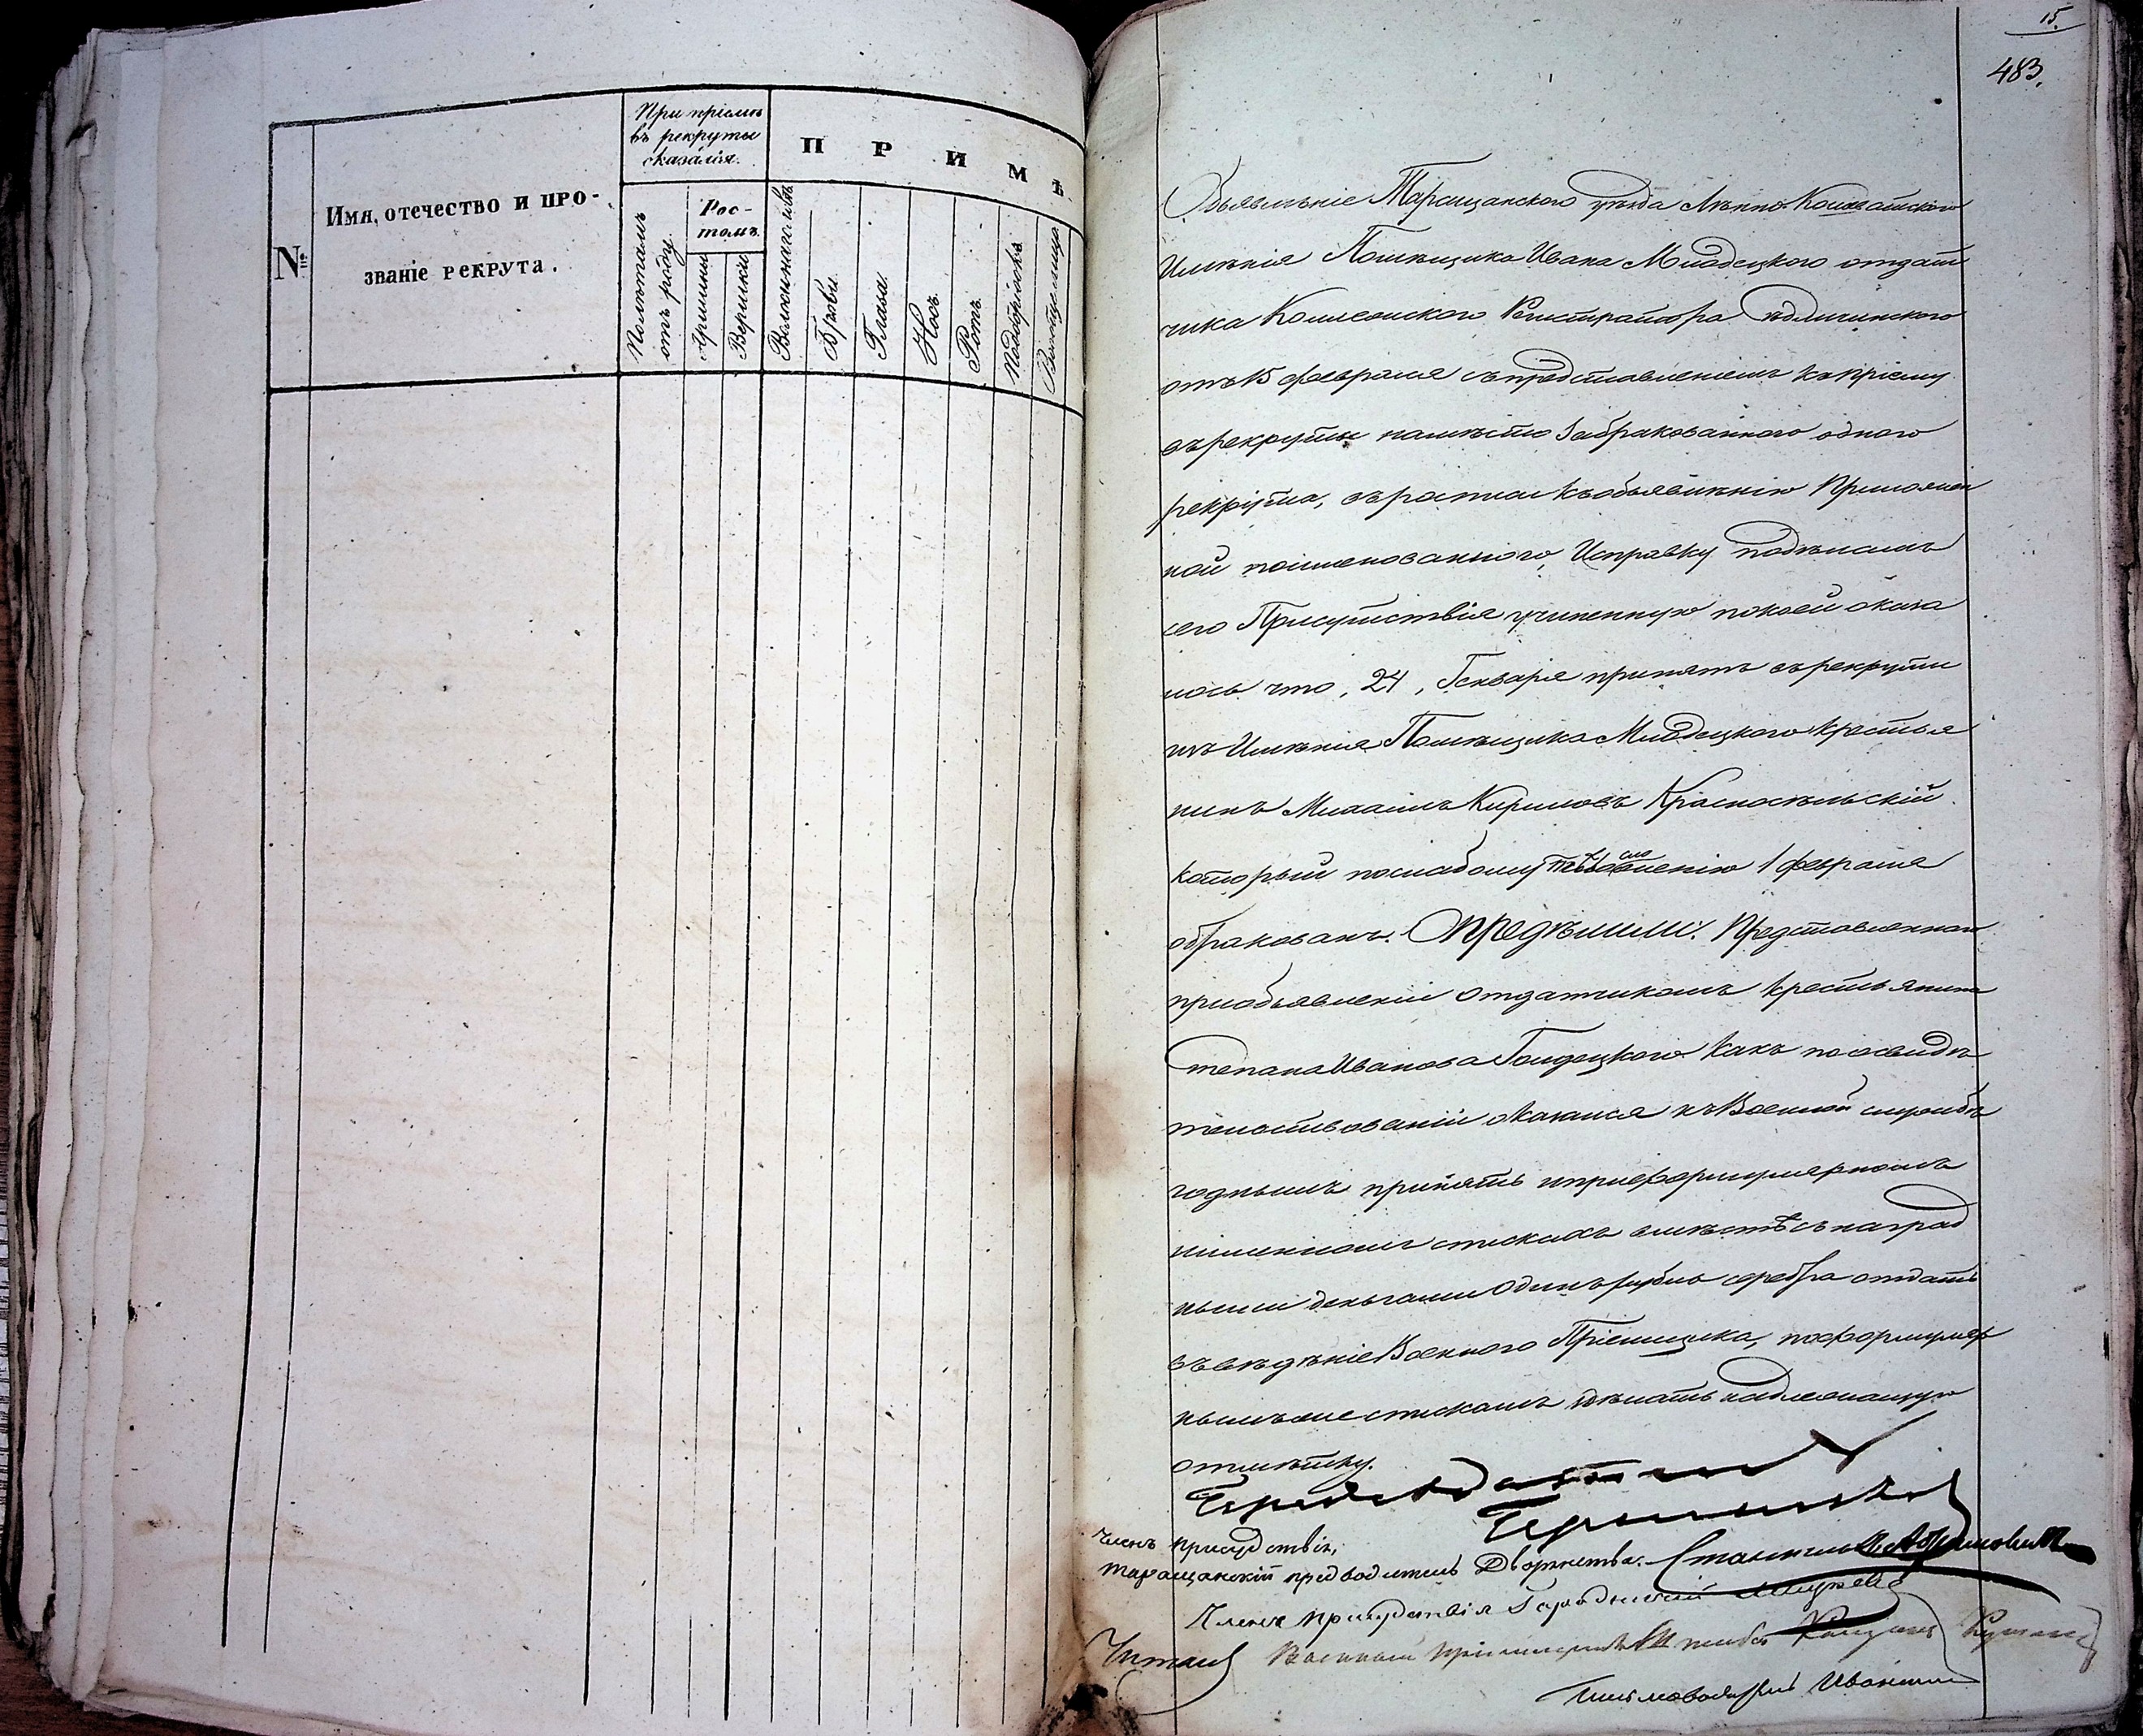 №
Имя, отечество и про-
званіе рекрута.
При пріемѣ
въ рекруты
сказался.
Полѣтамъ
отъ роду.
Рос-
томъ.
Аршины
Вершки
П Р И М Ѣ
Брови.
Глаза.
Носъ.
Ротъ.
Подбородокъ
15.
483.
Объявленіе Таращанского уѣзда
Имѣнія Помѣщика Ивана Млодецкого отдат
чика Колежского Регистратора
отъ 15 февраля съ представленіемъ къ пріему
въ рекруты намѣсто Забракованного одного
рекрута, въ росписи къ объявлѣнію Приложен
ной поименованного, Исправку подѣламъ
сего Присутствія учиненную по коей оказа
лось что, 24, Генваря принятъ въ рекруты
изъ Имѣнія Помѣщика Млодецкого крестья
нинъ Михаилъ Кириловъ Красносѣльскій
который по слабому сложенію 1 февраля
обракованъ. Опредѣлили: Представленнаго
при объявленіи отдатчикомъ крестьянина
Степана Иванова Голдецкого Какъ по освидѣ
тельствованіи оказался къ Военной службѣ
годнымъ принять и при формулярномъ
имянномъ спискахъ вмѣстѣ съ наград
ными деньгами Одинъ рубль серебра отдать
въ вѣдѣніе Военного Пріемщика, по формуляр
нымъ же спискамъ здѣлать надлежащую
отмѣтку.
Членъ присудствія,
таращанскій предводитель Дворянства.
Членъ присудствія Городничій
Читалъ Военный пріемщикъ
Письмоводитель